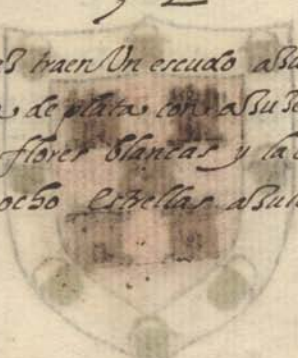 traen Un escudo aSu
de plata con aSuSe
flores blancas y la
ocho estrellas aSule